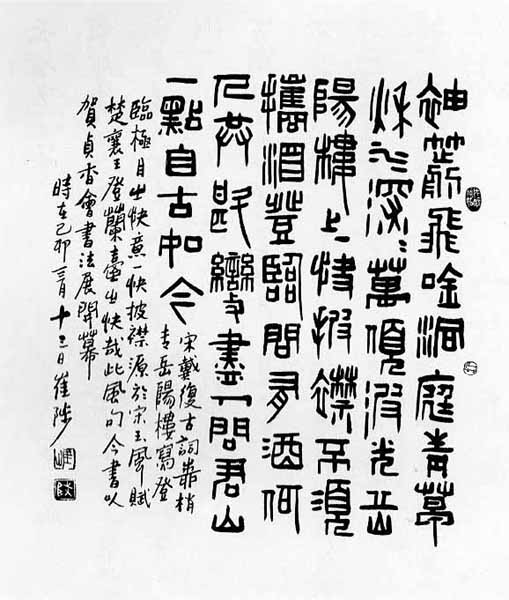 袖劍飛唫洞庭青草
秋水深〻萬頃波光岳
陽樓上一快披襟不須
攜酒登臨問有酒何
人共斟變盡人間君山
一點自古如今
宋戴復古詞柳梢
青岳陽樓寫登
臨極目之快意一快披襟源於宋玉風賦
楚襄王登蘭臺之快哉此風句今書以
賀貞香會書法展開幕
時在己卯三月十三日崔陟
崔
陟